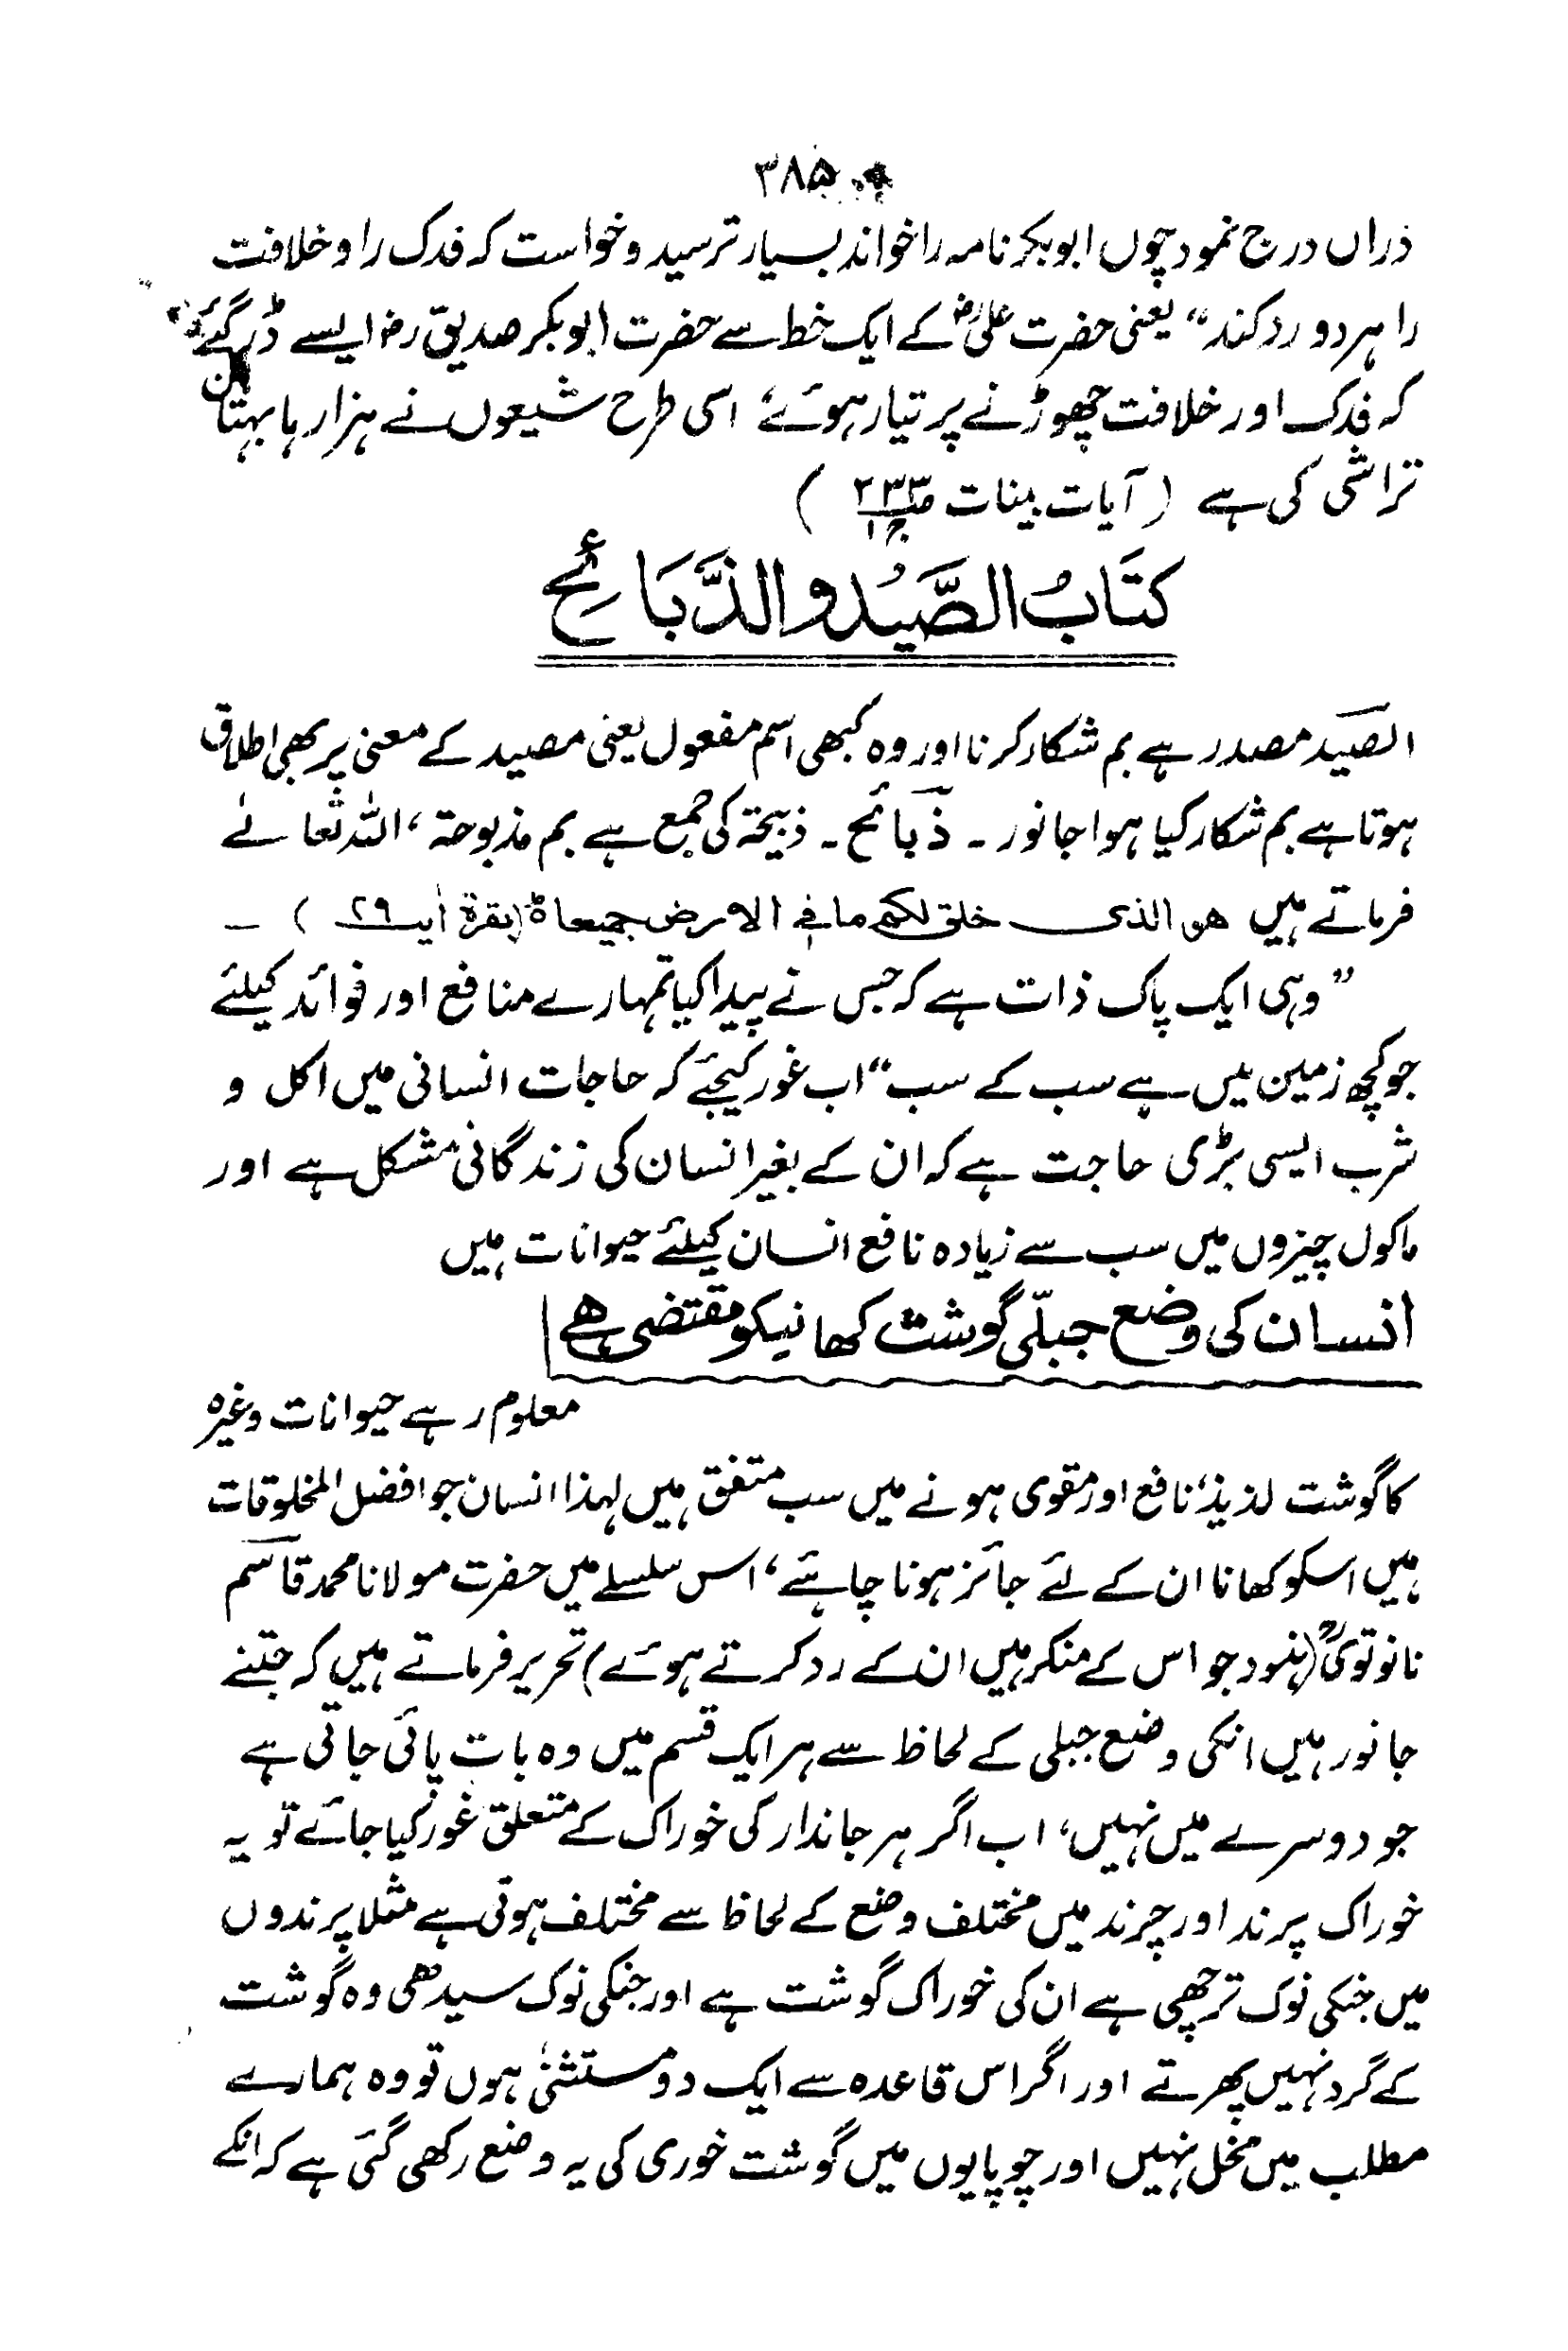 ۳۸۵
ذراں درج نمود چوں ابوبکر نامہ را خواند بسیار ترسید و خواست کہ فدک را و خلافت
را ہر دو رد کند“ یعنی حضرت علیؓ کے ایک خط سے حضرت ابوبکر صدیقؓ ایسے ڈر گئے
کہ فدک اور خلافت چھوڑنے پر تیار ہوئے، اسی طرح شیعوں نے ہزارہا بہتان
تراشی کی ہے (آیات بینات ص۲۳۳ ج۱)
کتَابُ الصَّیُد والذَّبَائِحِ
الصَّید مصدر ہے بم شکار کرنا اور وہ کبھی اسم مفعول یعنی مصید کے معنی پر بھی اطلاق
ہوتا ہے بم شکار کیا ہوا جانور ۔ ذَبائح ۔ ذبیحۃ کی جمع ہے بم مذبوحۃ، اللہ تعالےٰ
فرماتے ہیں ھو الذی خلق لکم ما فی الارض جمیعا ۃ (بقرۃ آیت ۲۹) ۔
”وہی ایک پاک ذات ہے کہ جس نے پیدا کیا تمہارے منافع اور فوائد کیلئے
جو کچھ زمین میں ہے سب کے سب“ اب غور کیجئے کہ حاجات انسانی میں اکل و
شرب ایسی بڑی حاجت ہے کہ ان کے بغیر انسان کی زندگانی مشکل ہے اور
ماکول چیزوں میں سب سے زیادہ نافع انسان کیلئے حیوانات ہیں
انسان کی وضع جبلّی گوشت کھانیکو مقتضی ھے
معلوم رہے حیوانات وغیرہ
کا گوشت لذیذ، نافع اور مقوی ہونے میں سب متفق ہیں لہذا انسان جو افضل المخلوقات
ہیں اسکو کھانا ان کے لئے جائز ہونا چاہئے، اس سلسلے میں حضرت مولانا محمد قاسم
نانوتویؒ (ہنود جو اس کے منکر ہیں ان کے رد کرتے ہوئے) تحریر فرماتے ہیں کہ جتنے
جانور ہیں انکی وضع جبلی کے لحاظ سے ہر ایک قسم میں وہ بات پائی جاتی ہے
جو دوسرے میں نہیں، اب اگر ہر جاندار کی خوراک کے متعلق غور کیا جائے تو یہ
خوراک پرند اور چرند میں مختلف وضع کے لحاظ سے مختلف ہوتی ہے مثلا پرندوں
میں جنکی نوک ترچھی ہے ان کی خوراک گوشت ہے اور جنکی نوک سیدھی وہ گوشت
کے گرد نہیں پھرتے اور اگر اس قاعدہ سے ایک دو مستثنیٰ ہوں تو وہ ہمارے
مطلب میں مخل نہیں اور چوپایوں میں گوشت خوری کی یہ وضع رکھی گئی ہے کہ انکے